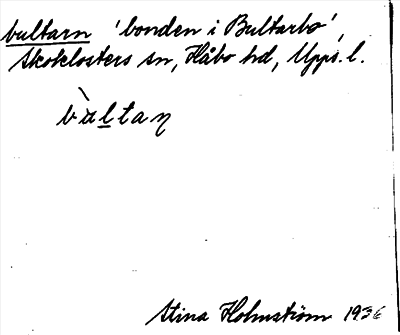 bultarn 'bonden i Bultarbo',
Skoklosters sn, Håbo hd, Upps. l.
bùltaṇ
Stina Holmström 1936